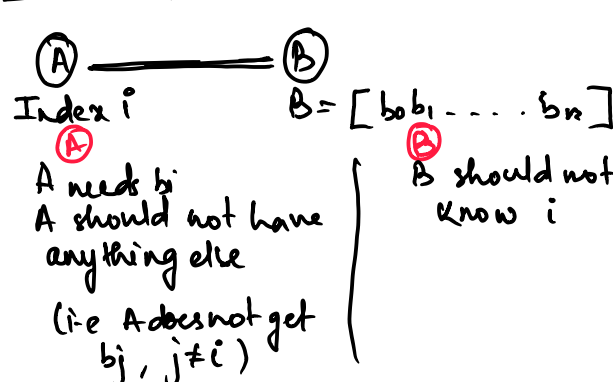 A B
Index i B = [ b0 b1 ..... bn ]
A B
A needs bi
A should not have
anything else
(i-e A does not get
bj, j ≠ i )
B should not
know i